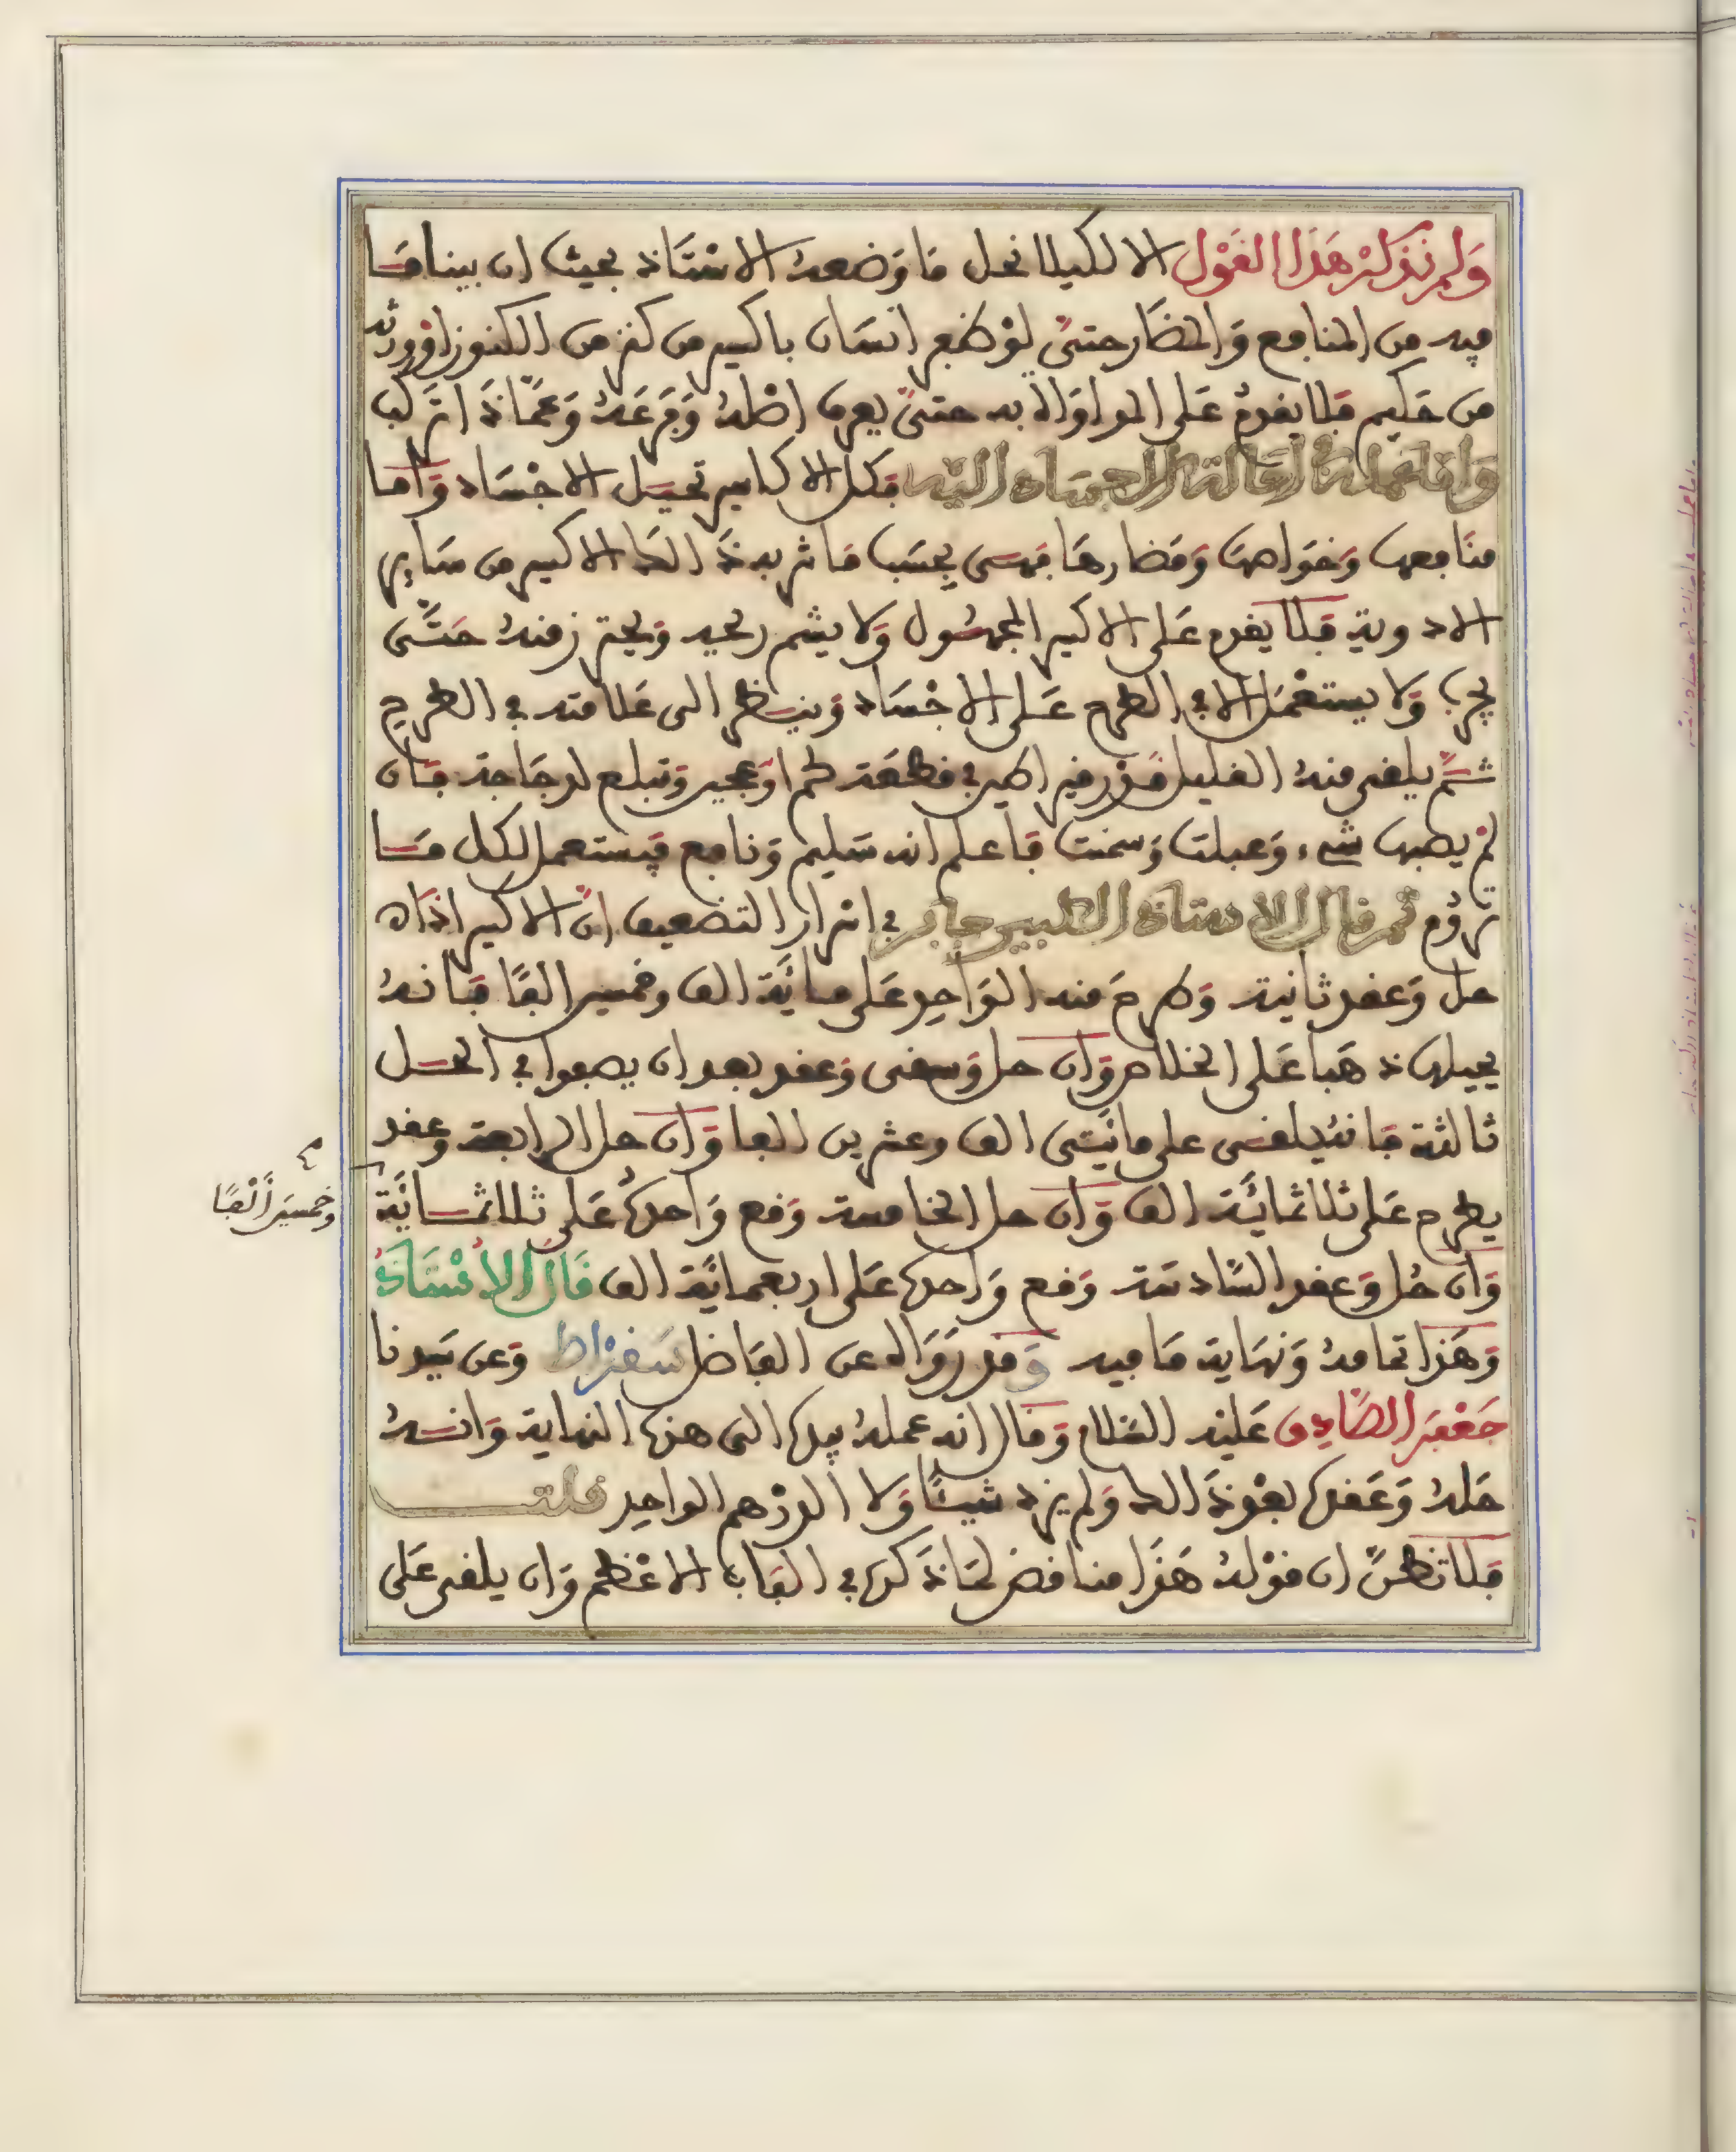 ولم نذكر هذا القول الا لكيلا نخل ما وضعه الاستاذ بحيث ان بينا ما
فيه من المنافع والمضار حتى لو ظفر انسان باكسير من كنز من الكنوز او ورثه
من حكيم فلا يقدم على المداواة به حتى يعرف اصله وفرعه وعماذا اتركب
واما عملية احالة الاجساد اليه فكل الاكاسير تحيل الاجساد واما
منافعها وخواصها ومضارها فهى بحسب ما شربه ذالك الاكسير من ساير
الادوية فلا يقدم على الاكسير المجهول ولا يشم ريحه ويحترز منه حتى
يجرب ولا يستعمل الا في الطرح على الاجساد وينظر الى علامته في الطرح
ثم يلقى منه القليل قدر في قطعة لحم او عجين وتبلع لدجاجة فان
لم يصبها شيء وعبلت وسمنت فاعلم انه سليم ونافع فيستعمل لكل ما
تروم ثم قال الاستاذ الكبير جابر في اسرار التضعيف ان الاكسير اذا
حل وعقد ثانية وطرح منه الواحد على مائة الف وخمسين الفا فانه
يحيلها ذهبا على الخلاص وان حل وسقى وعقد بعد ان يصفوا في الحل
ثالثة فانه يلقى على مائتى الف وعشرين الفا وان حل الرابعة وعقد
يطرح على ثلاثمائة الف وان حل الخامسة وقع واحده على ثلاثمائة
وخمسين ألفا
وان حل وعقد السادسة وقع واحده على اربعمائة الف قال الاستاذ
وهذا تمامه ونهاية ما فيه وقد رواه عن الفاضل سقراط وعن سيدنا
جعفر الصادق عليه السلام وقال انه عمله بيده الى هذه النهاية وانه
حله وعقده بعد ذالك ولم يزد شيئا ولا الدرهم الواحد قلت
فلا تظن ان قوله هذا مناقض لما ذكره في الباب الاعظم وان يلقى على